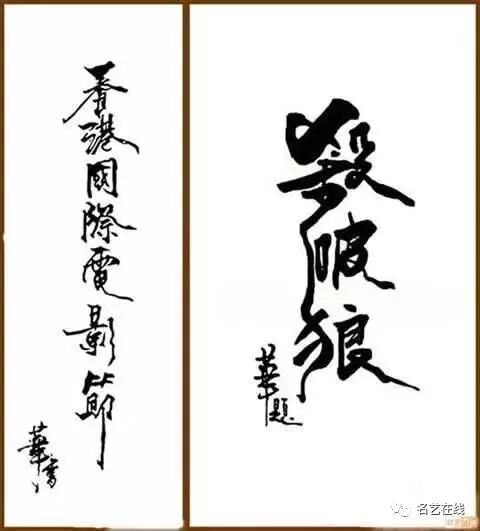 香港國際電影節
華書
殺破狼
華題
名艺在线